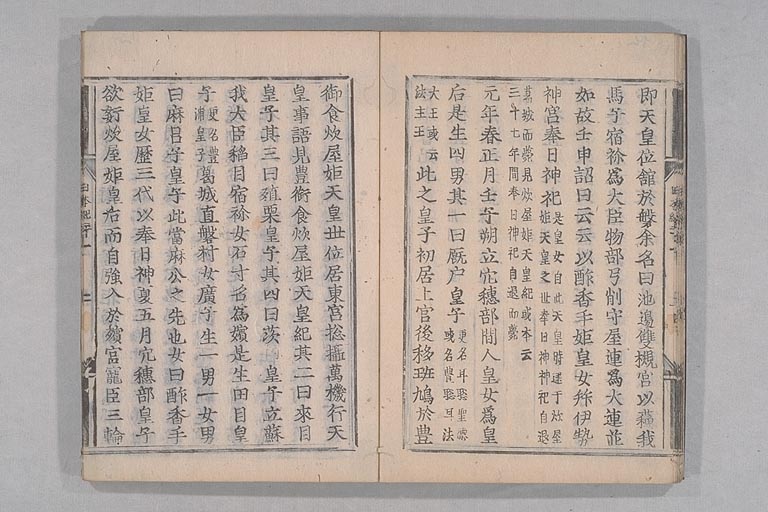 即天皇位舘於磐余名曰池邊雙槻宮以蘇我
馬子宿祢為大臣物部弓削守屋連為大連並
如故壬申詔曰云云以酢香手姫皇女拜伊勢
神宮奉日神祀是皇女自此天皇時逮于炊屋
姫天皇之世奉日神祀自退
葛城而薨見炊屋姫天皇紀或本云
三十七年間奉日神祀自退而薨
元年春正月壬子朔立穴穗部間人皇女為皇
后是生四男其一曰厩戸皇子更名耳聡聖德
或名豊聡耳法
大王或云
法主王此之皇子初居上宮後移班鳩於豊
御食炊屋姫天皇世位居東宮揔攝萬機行天
皇事語見豊御食炊屋姫天皇紀其二曰來目
皇子其三曰殖栗皇子其四曰茨皇子立蘇
我大臣稲目宿祢女石寸名為嬪是生田目皇
子更名豊
浦皇子葛城直磐村女廣子生一男一女男
曰麻呂子皇子此當麻公之先也女曰酢香手
姫皇女歷三代以奉日神夏五月穴穗部皇子
欲姧炊屋姫皇后而自強入於殯宮寵臣三輪